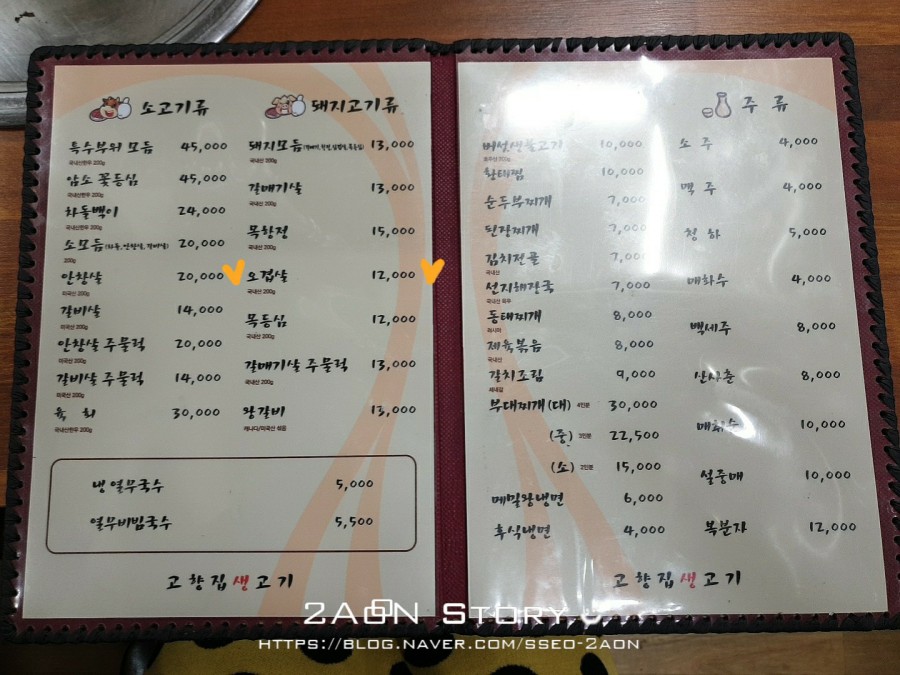 소고기류
특수부위 모듬 45,000
국내산한우 200g
암소 꽃등심 45,000
국내산한우 200g
차돌백이 24,000
국내산한우 200g
소모듬 20,000
200g
안창살 20,000
미국산 200g
갈비살 14,000
미국산 200g
안창살 주물럭 20,000
미국산 200g
갈비살 주물럭 14,000
미국산 200g
육 회 30,000
국내산한우 200g
돼지고기류
돼지모듬 13,000
국내산 200g
갈매기살 13,000
국내산 200g
목항정 15,000
국내산 200g
오겹살 12,000
국내산 200g
목등심 12,000
국내산 200g
갈매기살 주물럭 13,000
국내산 200g
왕갈비 13,000
냉열무국수 5,000
열무비빔국수 5,500
고향집생고기
버섯생불고기 10,000
황태찜 10,000
순두부찌개 7,000
된장찌개 7,000
김치전골 7,000
국내산
선지해장국 7,000
동태찌개 8,000
러시아
제육볶음 8,000
국내산
갈치조림 9,000
세네갈
부대찌개(대) 4인분 30,000
(중) 3인분 22,500
(소) 2인분 15,000
메밀왕냉면 6,000
후식냉면 4,000
주 류
소 주 4,000
맥 주 4,000
청 하 5,000
매화수 4,000
백세주 8,000
산사춘 8,000
매취순 10,000
설중매 10,000
복분자 12,000
고향집생고기
2AON Story
https://blog.naver.com/sseo-2aon